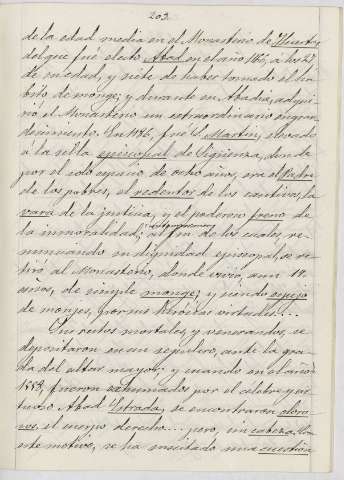 203.
de la edad media en el Monasterio de Huerta,
del que fué electo Abad en el año 166, á los 27
de su edad, y siete de haber tomado el há-
bito de monge; y durante su Abadía, adqui-
rió el Monasterio un extraordinario engran-
decimiento. En 1186, fué S. Martín, elevado
á la silla episcopal de Sigüenza, donde
por el solo espacio de ocho años, era el Padre
de los pobres, el redentor de los cautivos, la
vara de la justicia, y el poderoso freno de
la inmoralidad; al fin de los cuales re-
nunciando su dignidad episcopal, se re-
tiró al Monasterio, donde vivió, aun 18
años, de simple monge; y siendo espejo
de monges, por sus heróicas virtudes...
Sus restos mortales, y venerandos, se
depositaron en un sepulcro, ante la gra-
da del altar mayor; y cuando en el año
1558, fueron exhumados por el célebre y vir-
tuoso Abad Estrada, se encontraron oloro-
sos, el cuerpo derecho... pero, sin cabeza. Con
este motivo, se ha suscitado una cuestión